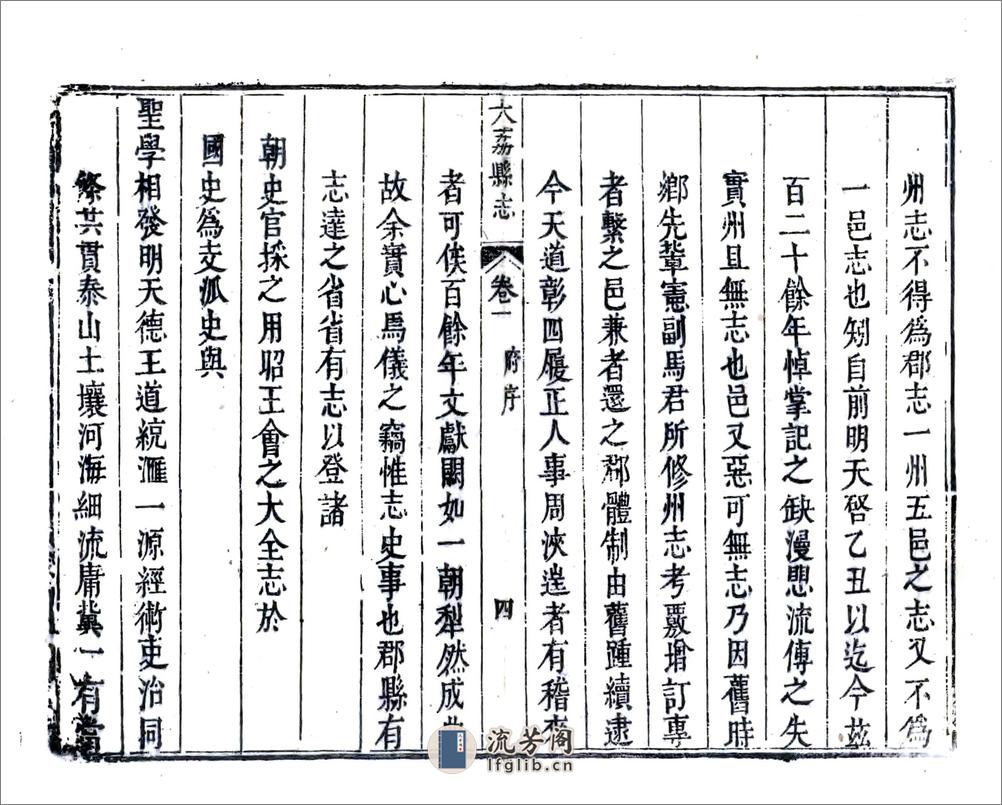 州志不得為郡志一州五邑之志又不為
一邑志也矧自前明天啓乙丑以迄今茲
百二十餘年悼掌記之缺漫思流傳之失
實州且無志也邑又惡可無志乃因舊時
鄉先輩憲副馬君所修州志考覈增訂專
者繫之邑兼者還之郡體制由舊踵續逮
今天道彰四履正人事周浹逞者有稽來
大荔縣志
卷一
府序
四
者可俟百餘年文獻闕如一朝犁然成
故余實心焉儀之竊惟志史事也郡縣有
志達之省省有志以登諸
朝史官採之用昭王會之大全志於
國史為支派史與
聖學相發明天德王道統滙一源經術吏治同
條共貫泰山土壤河海細流庸冀一有當
流芳閣
lfglib.cn